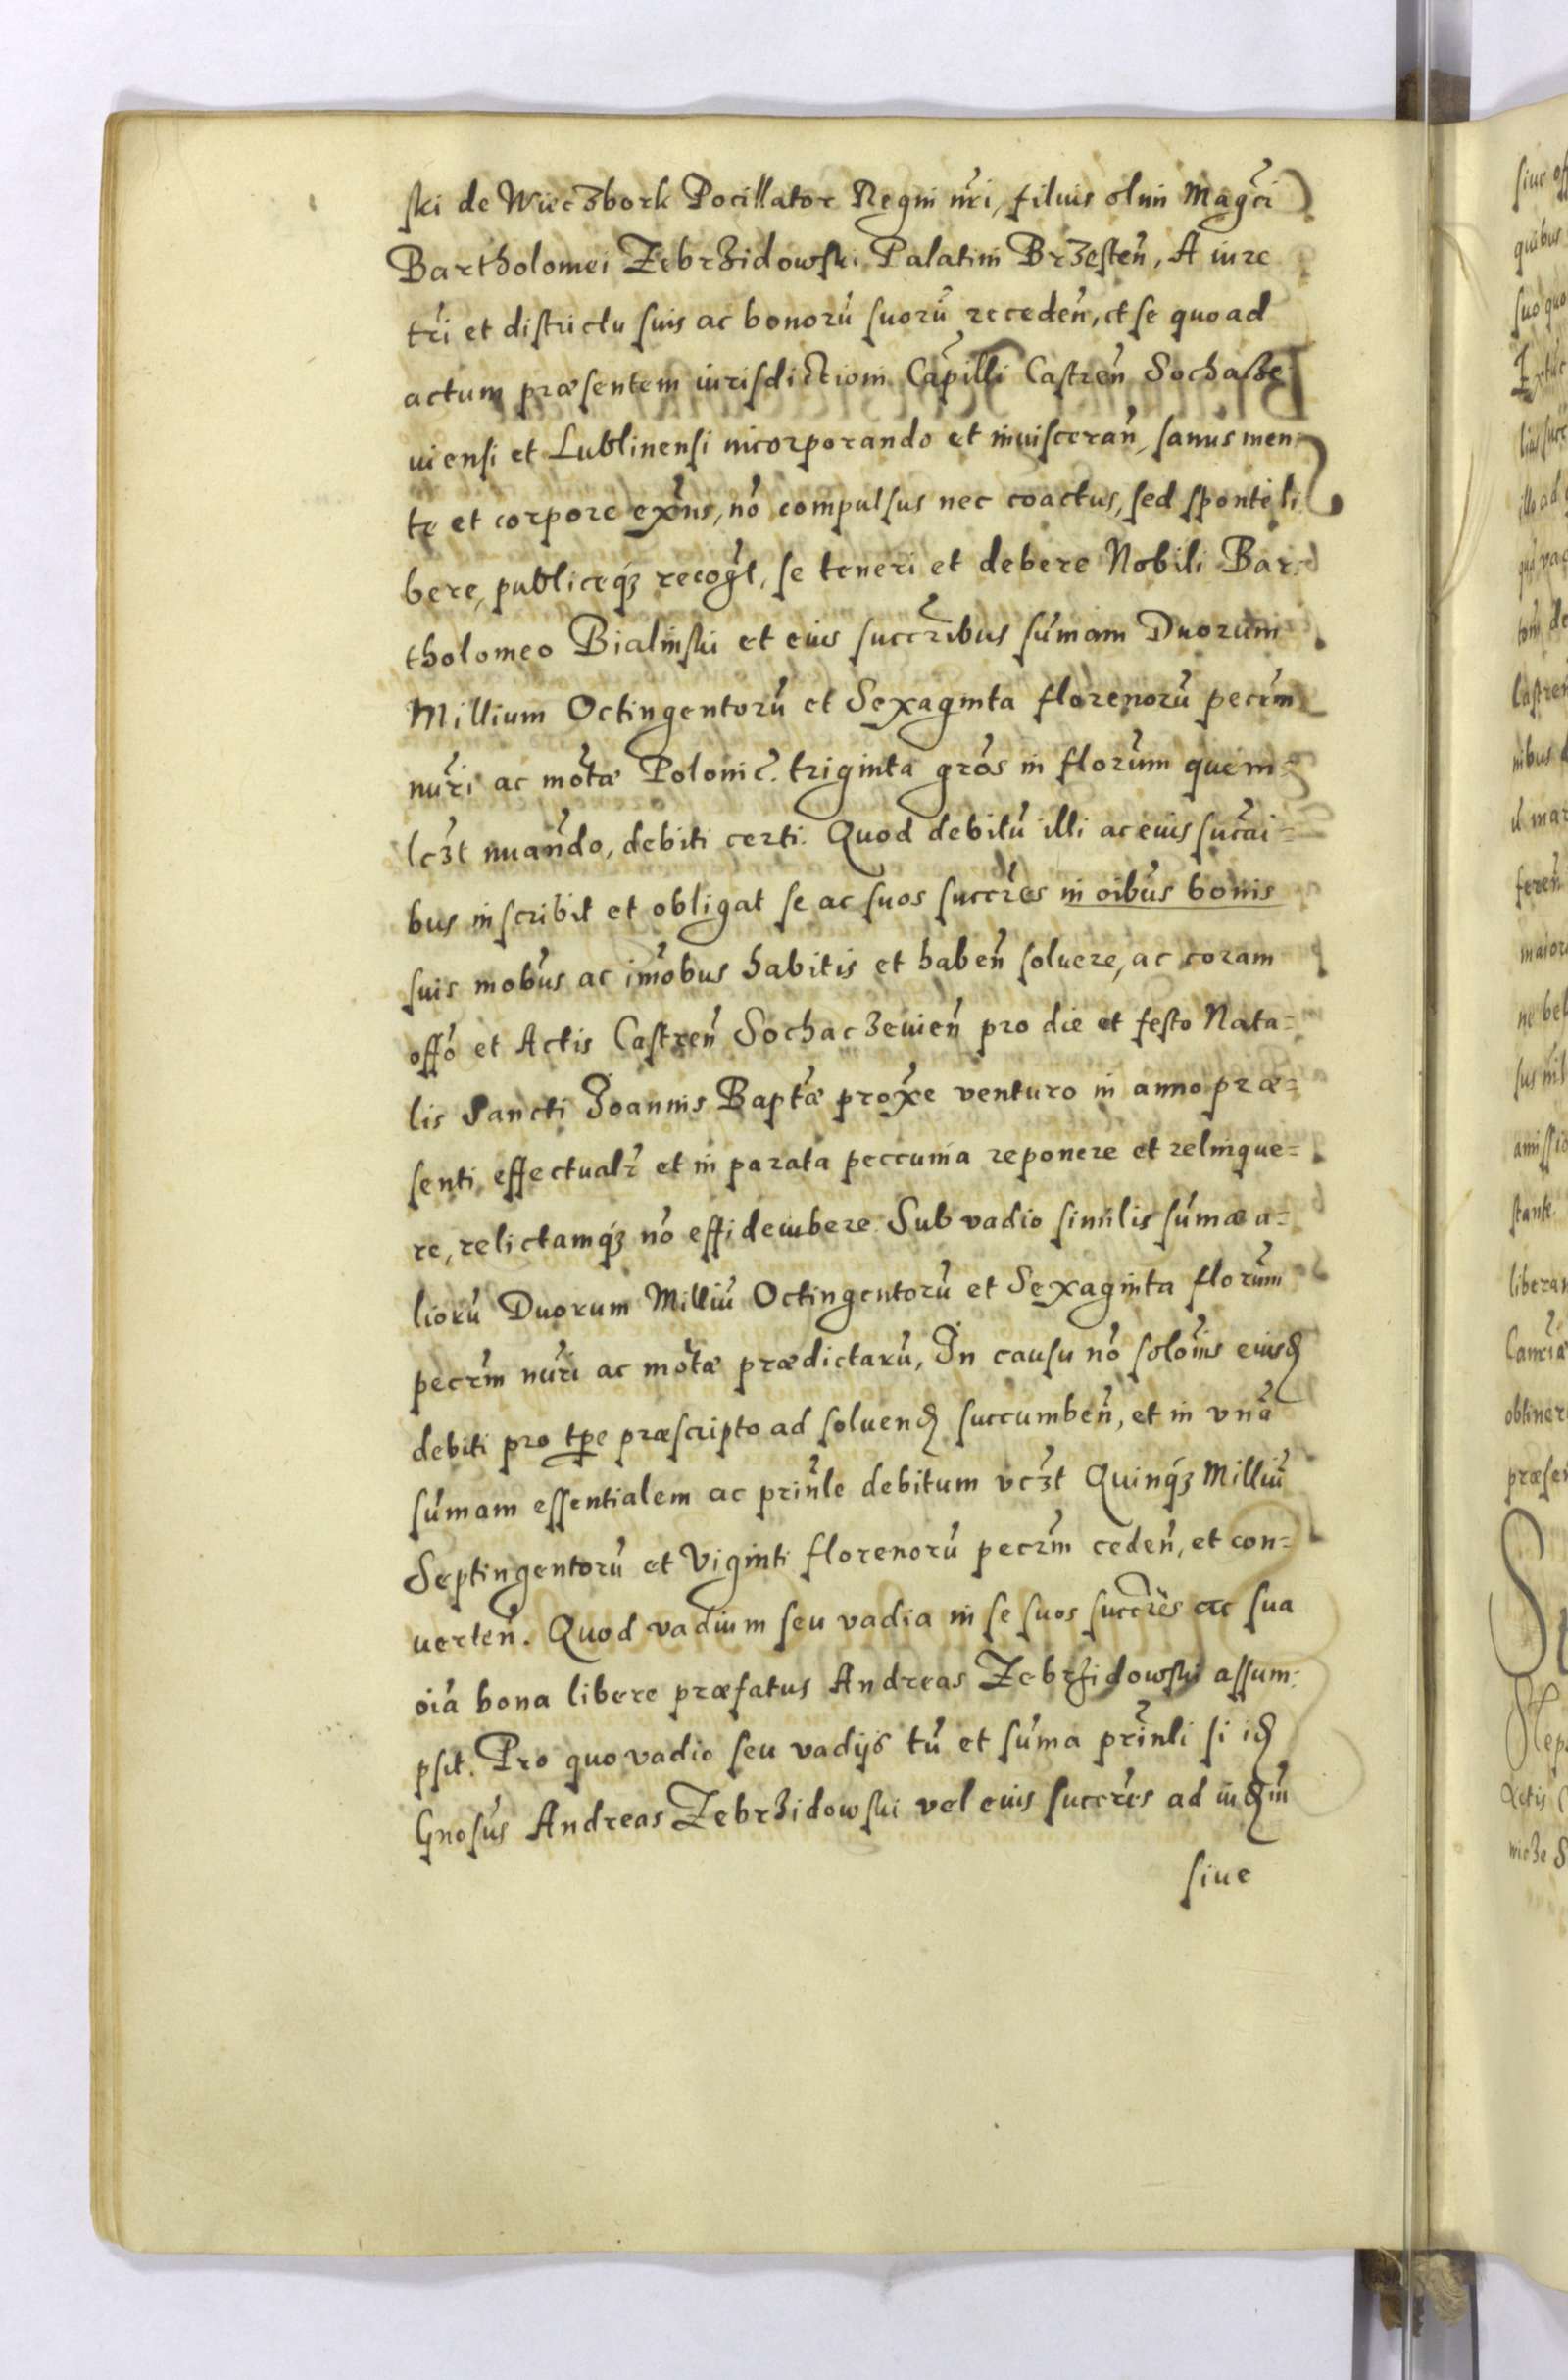 ski de Wieczbork Pocillator Regni nr̃i, filius olim Magc̃i
Bartholomei Zebrzidowski Palatini Brzesteñ, A iure
tr̃i et districtu suis ac bonorũ suorũ recedeñ, et se quoad
actum præsentem iurisdictioni Cap̃illi Castreñ Sochacze
uiensi et Lublinensi incorporando et inuisceran̄, sanus men
te et corpore ex̃ns, nõ compulsus nec coactus, sed sponte li
bere, publiceqȝ recog̃t, se teneri et debere Nobili Bar
tholomeo Bialinski et eius succr̃ibus sum̃am Duorum
Millium Octingentorũ et Sexaginta florenorũ pecr̃m
nur̃i ac mot̃æ Polonic̃. triginta gros̃ in flor̃um quem
lcȝt nuan̄do, debiti certi. Quod debitũ illi ac eius sucr̃i=
bus inscribit et obligat se ac suos succr̃es in oib̃us bonis
suis mob̃us ac im̃obus habitis et habeñ soluere, ac coram
off̃o et Actis Castreñ Sochaczeuieñ pro die et festo Nata=
lis Sancti Joannis Bapt̃æ prox̃e venturo in anno præ=
senti effectualr̃ et in parata peccunia reponere et relinque=
re, relictamqȝ nõ effidemibere. Sub vadio similis sum̃æ a=
liorũ Duorum Milliũ Octingentorũ et Sexaginta flor̃um
pecr̃m nur̃i ac mot̃æ prædictarũ, In causu nõ soloñis eiusd
debiti pro tp̃e præscripto ad soluend succumbeñ, et in vnã
sum̃am essentialem ac prin̄le debitum vcȝt Quinqȝ Milliũ
Septingentorũ et Viginti florenorũ pecr̃m cedeñ, et con=
uerteñ. Quod vadium seu vadia in se suos succr̃es ac sua
oĩa bona libere præfatus Andreas Zebrzidowski assum
psit. Pro quo vadio seu vadijs tũ et sum̃a prin̄li si id
Gnos̃us Andreas Zebrzidowski vel eius succr̃es ad iud̃m
siue